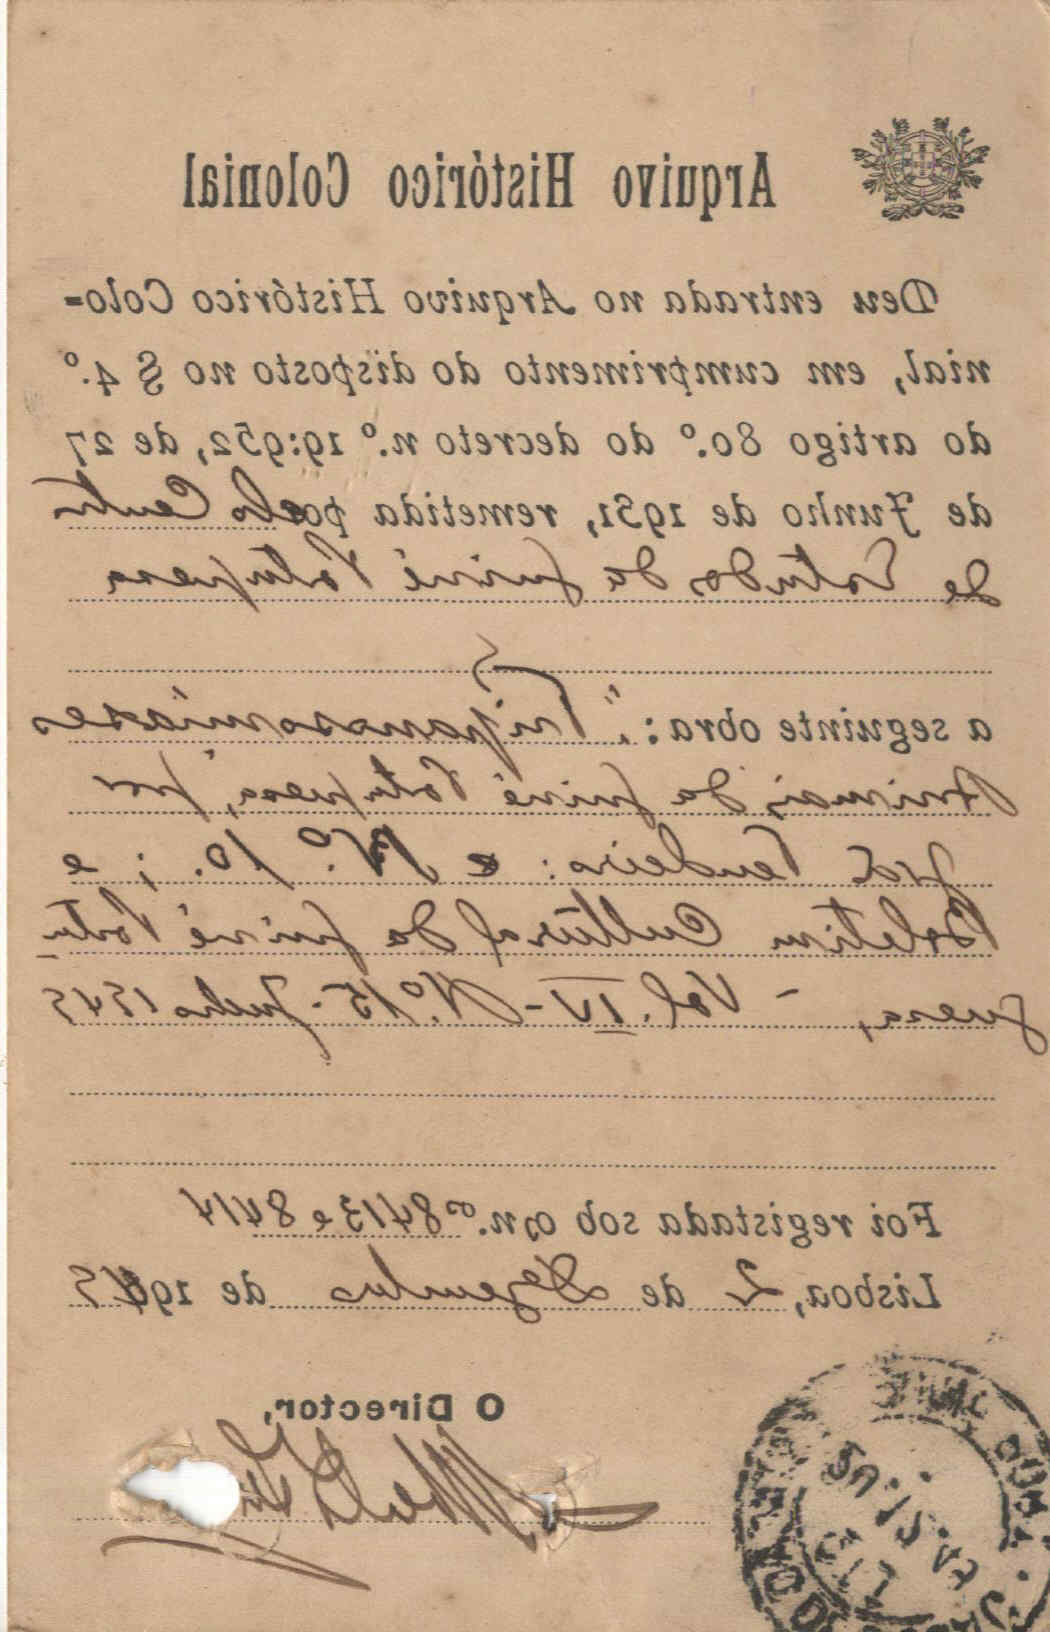 Arquivo Histórico Colonial
Deu entrada no Arquivo Histórico Colo=
nial, em cumprimento do disposto no § 4.º
do artigo 80.º do decreto n.º 19:952, de 27
de Junho de 1931, remetida pelo Centro
de Estudos da Guiné Portuguesa
a seguinte obra: "Tripanossomíases
Animais da Guiné Portuguesa", por
José Tendeiro: e N.º 10. ; e
Boletim Cultural da Guiné Portu
guesa, - Vol. IV - N.º 15 - Julho 1949
Foi registada sob os n.os 8413 e 8414
Lisboa, 2 de Dezembro de 1949
O Director,